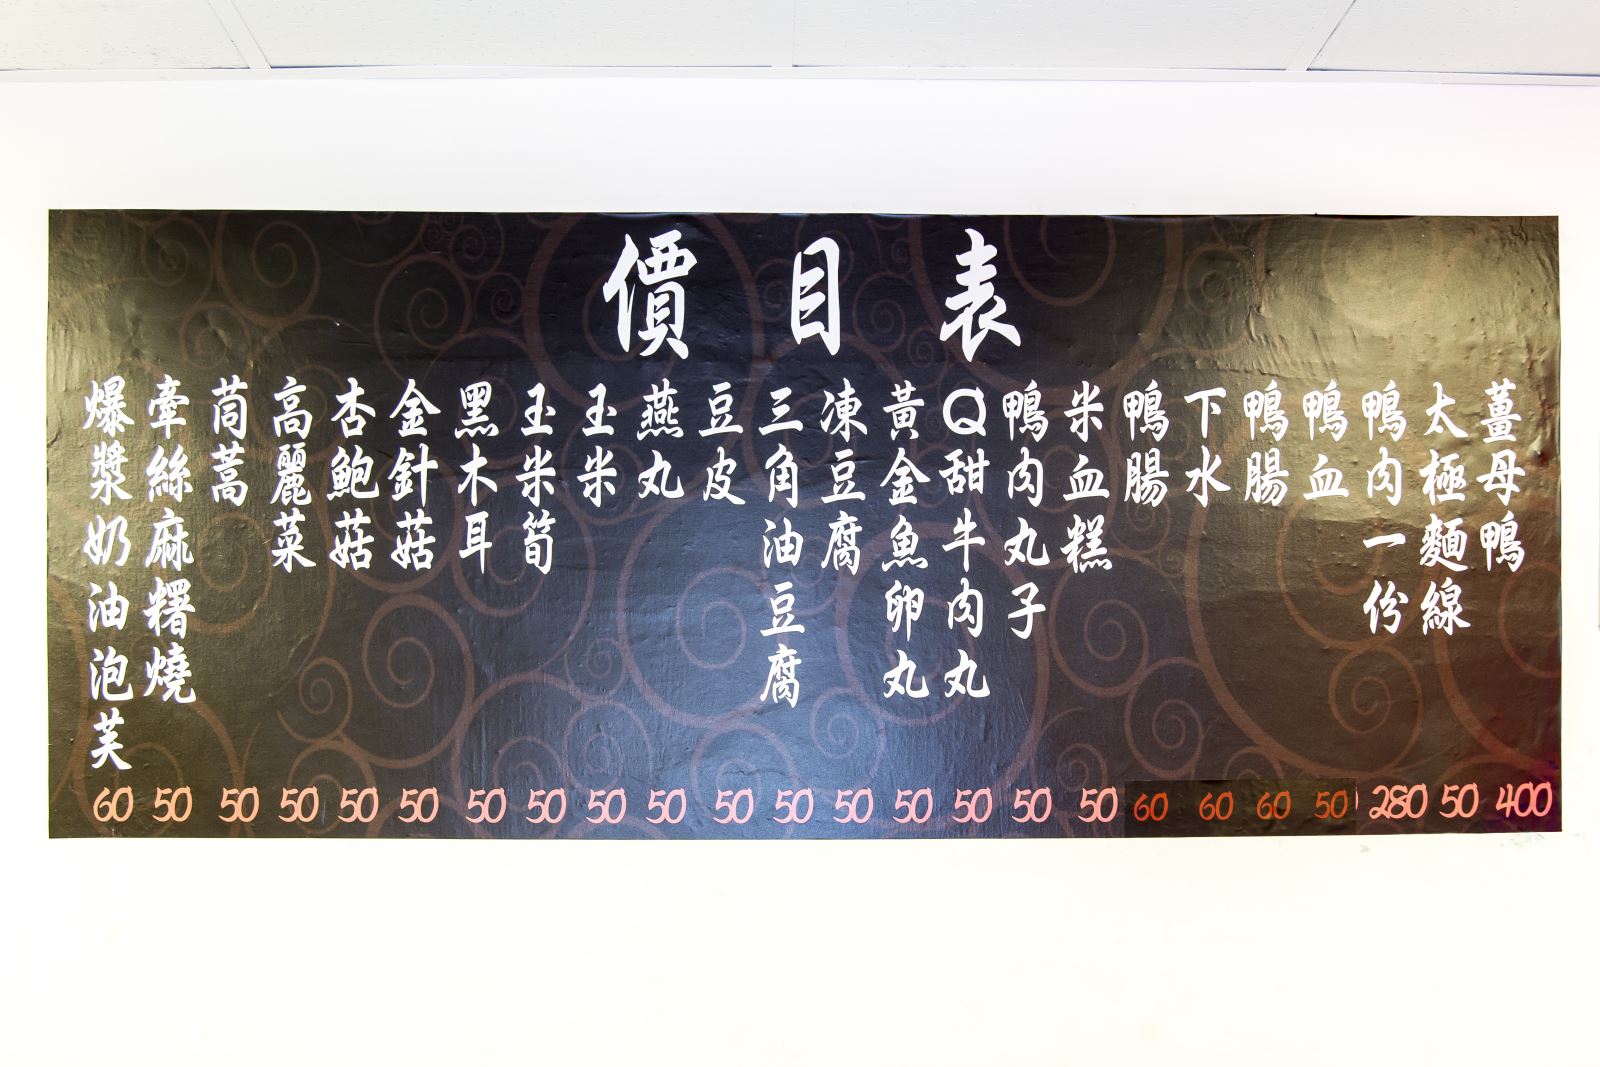 價目表
薑母鴨 400
太極麵線 50
鴨肉一份 280
鴨血 50
鴨腸 60
下水 60
鴨腸 60
米血糕 50
鴨肉丸子 50
Q甜牛肉丸 50
黃金魚卵丸 50
凍豆腐 50
三角油豆腐 50
豆皮 50
燕丸 50
玉米 50
玉米筍 50
黑木耳 50
金針菇 50
杏鮑菇 50
高麗菜 50
茼蒿 50
牽絲麻糬燒 50
爆漿奶油泡芙 60